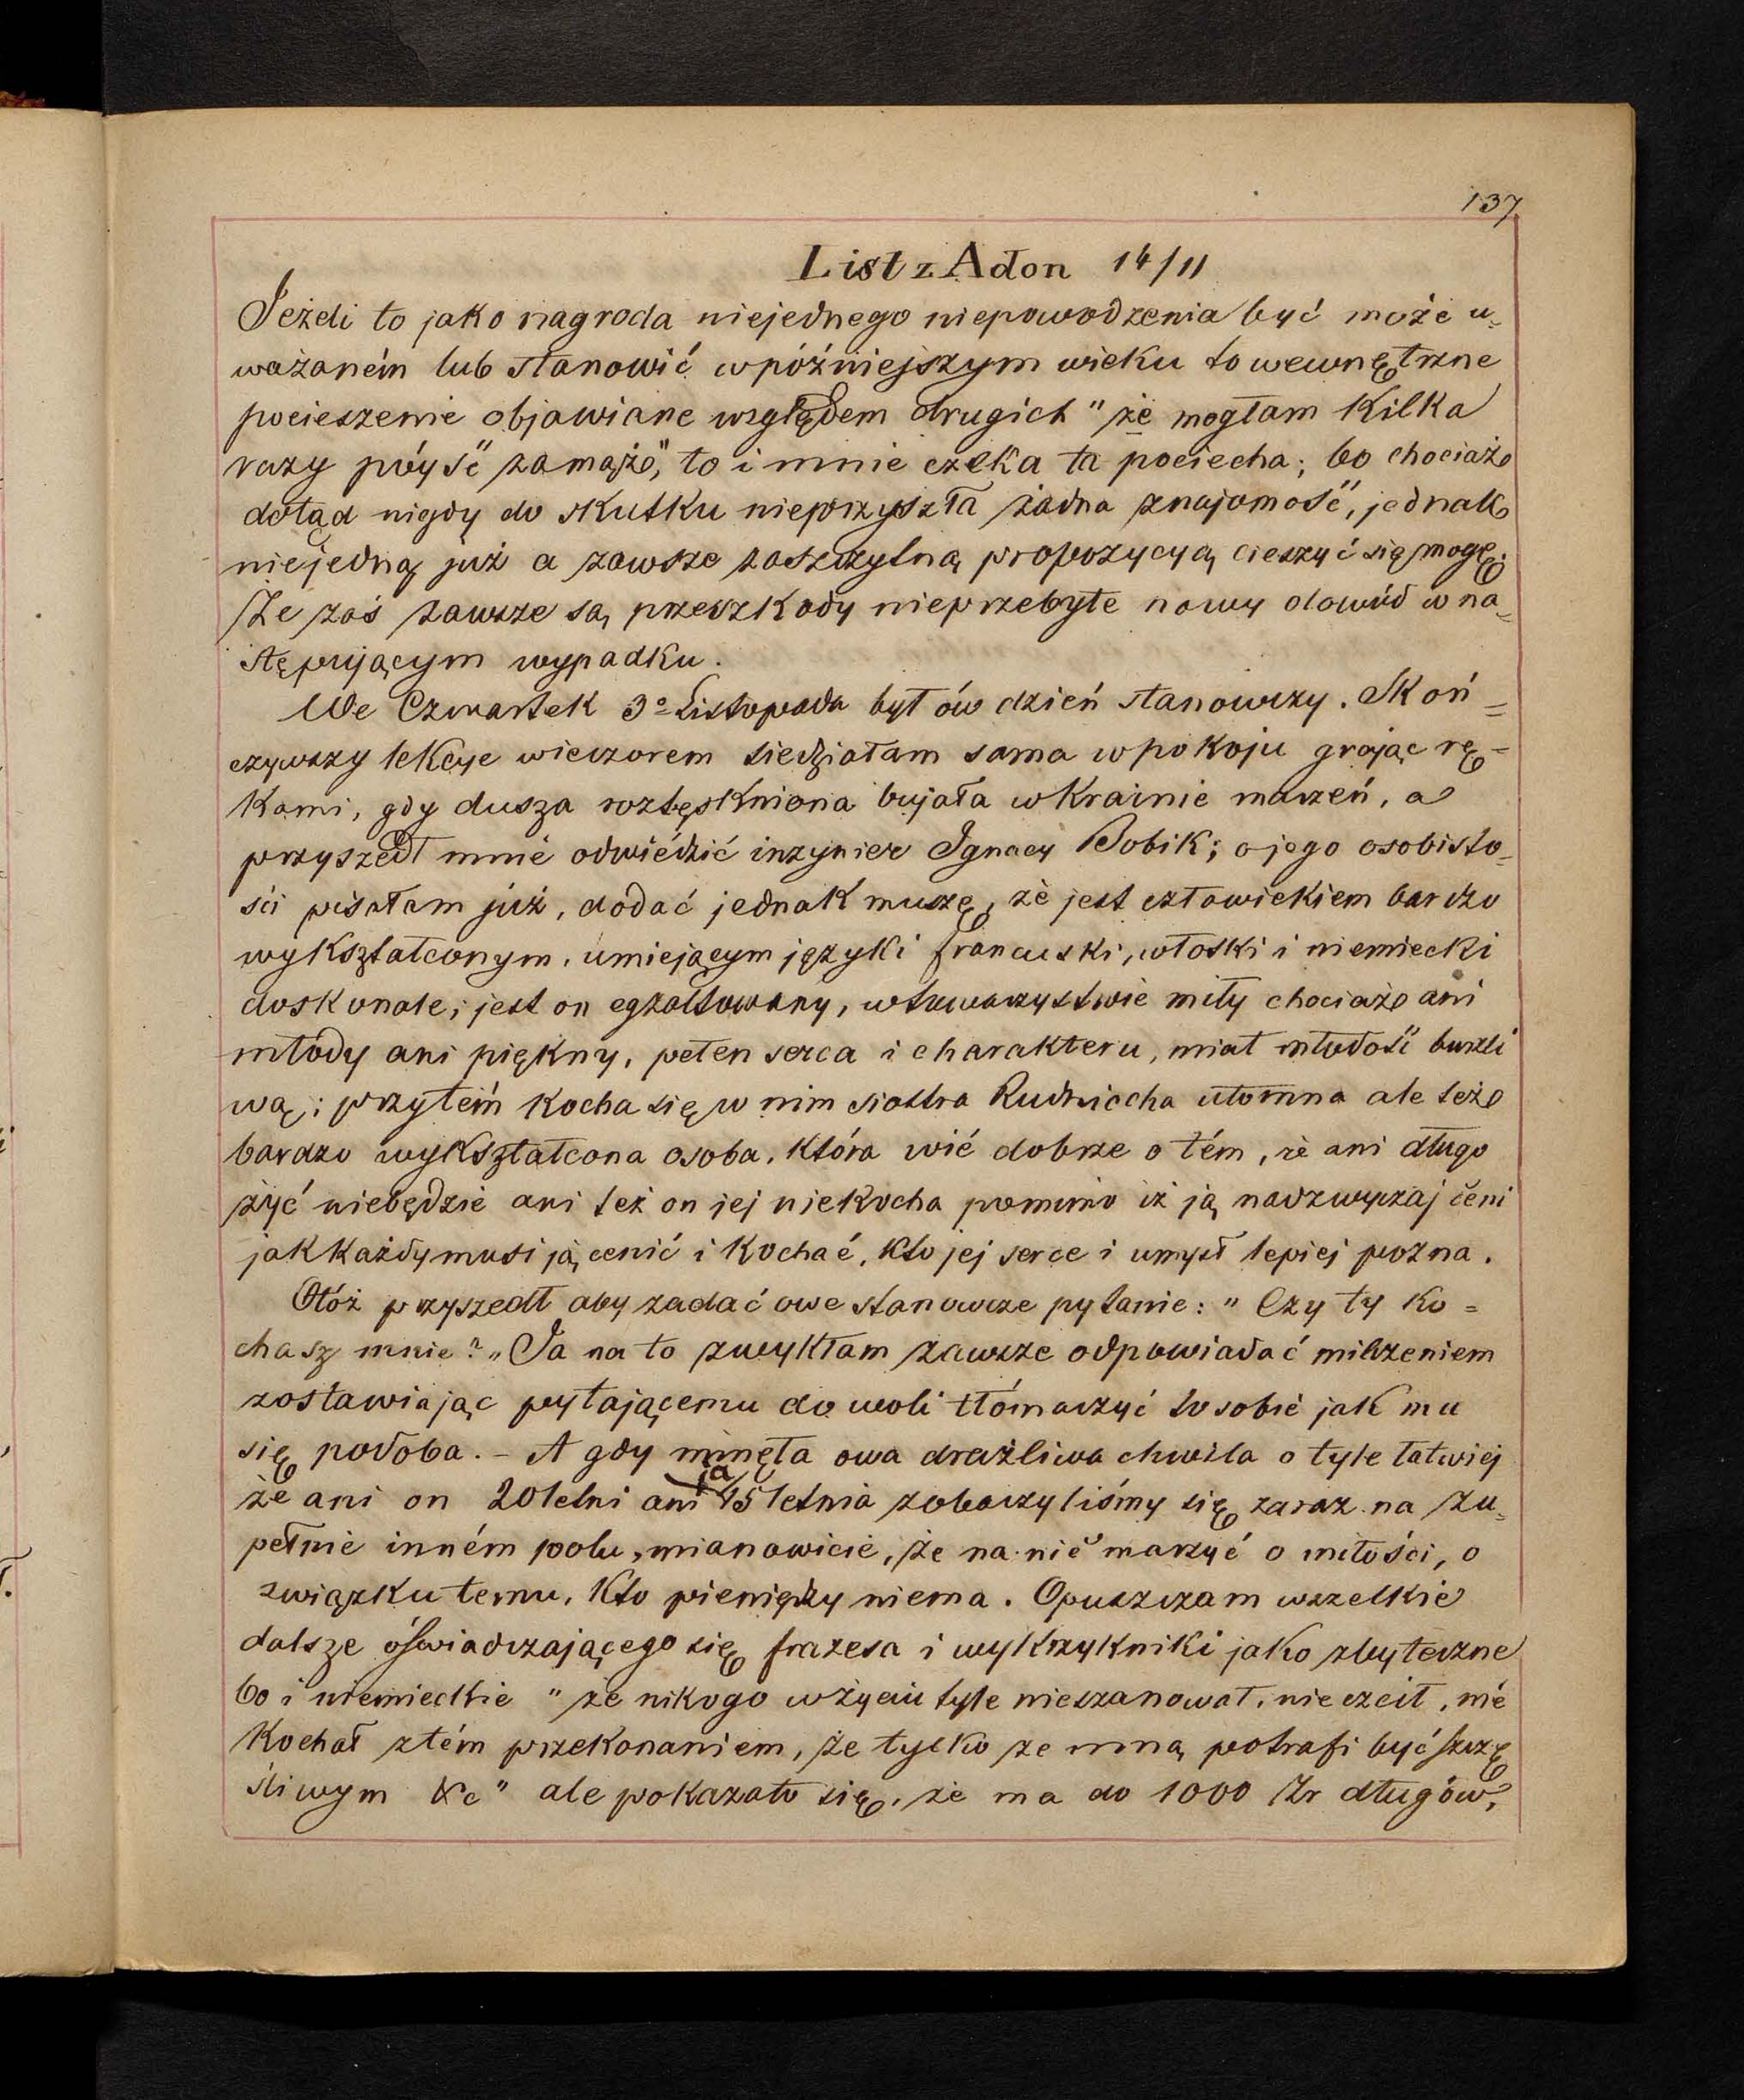 137
List z Adon 14/11
Jeżeli to jako nagroda niejednego niepowodzenia być może u=
ważaném lub stanowić wpóźniejszym wieku to wewnętrzne
pocieszenie objawiane względem drugich "że mogłam kilka
razy pójść zamąż", to i mnie czeka ta pociecha; bo chociaż
dotąd nigdy do skutku nieprzyszła żadna znajomość, jednak
niejedną już a zawsze zaszczytną propozycyą cieszyć się mogę.
Że zaś zawsze są przeszkody nieprzebyte nowy dowód w na=
stępującym wypadku.
We Czwartek 3º Listopada był ów dzień stanowczy. Skoń=
czywszy lekcye wieczorem siedziałam sama wpokoju grając rę=
kami, gdy dusza roztęskniona bujała wkrainie marzeń, a
przyszedł mnie odwiédzić inzynier Ignacy Bobik; o jego osobisto=
ści pisałam już, dodać jednak muszę, że jest człowiekiem bardzo
wykształconym, umiejącym języki francuski, włoski i niemiecki
doskonale; jest on egzaltowany, wtowarzystwie miły chociaż ani
młody ani piękny, pełen serca i charakteru, miał młodość burzli
wą; przytém kocha się w nim siostra Rudzicha ułomna ale też
bardzo wykształcona osoba, która wié dobrze o tém, że ani długo
żyć niebędzie ani też on jej niekocha pomimo iż ją nadzwyczaj ceni
jak każdy musi ją cenić i kochać, kto jej serce i umysł lepiej pozna.
Otóż przyszedł aby zadać owe stanowcze pytanie: "Czy ty ko=
chasz mnie?" Ja na to zwykłam zawsze odpowiadać milczeniem
zostawiając pytającemu do woli tłómaczyć to sobie jak mu
się podoba. - A gdy minęła owa drażliwa chwila o tyle łatwiej
że ani on 20letni ani ja 15letnia zobaczyliśmy się zaraz na zu=
pełnie inném polu, mianowicie, że na nic marzyć o miłości, o
związku temu, kto pieniędzy niema. Opuszczam wszelkie
dalsze oświadczającego się frazesa i wykrzykniki jako zbyteczne
bo i niemieckie "że nikogo wżyciu tyle nieszanował, nie czcił, nie
kochał ztém przekonaniem, że tylko ze mną potrafi być szczę
śliwym &c" ale pokazało się, że ma do 1000 Zr długów,